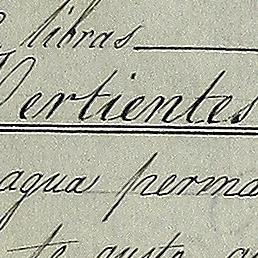 libras
Vertientes
agua perma
te gusto